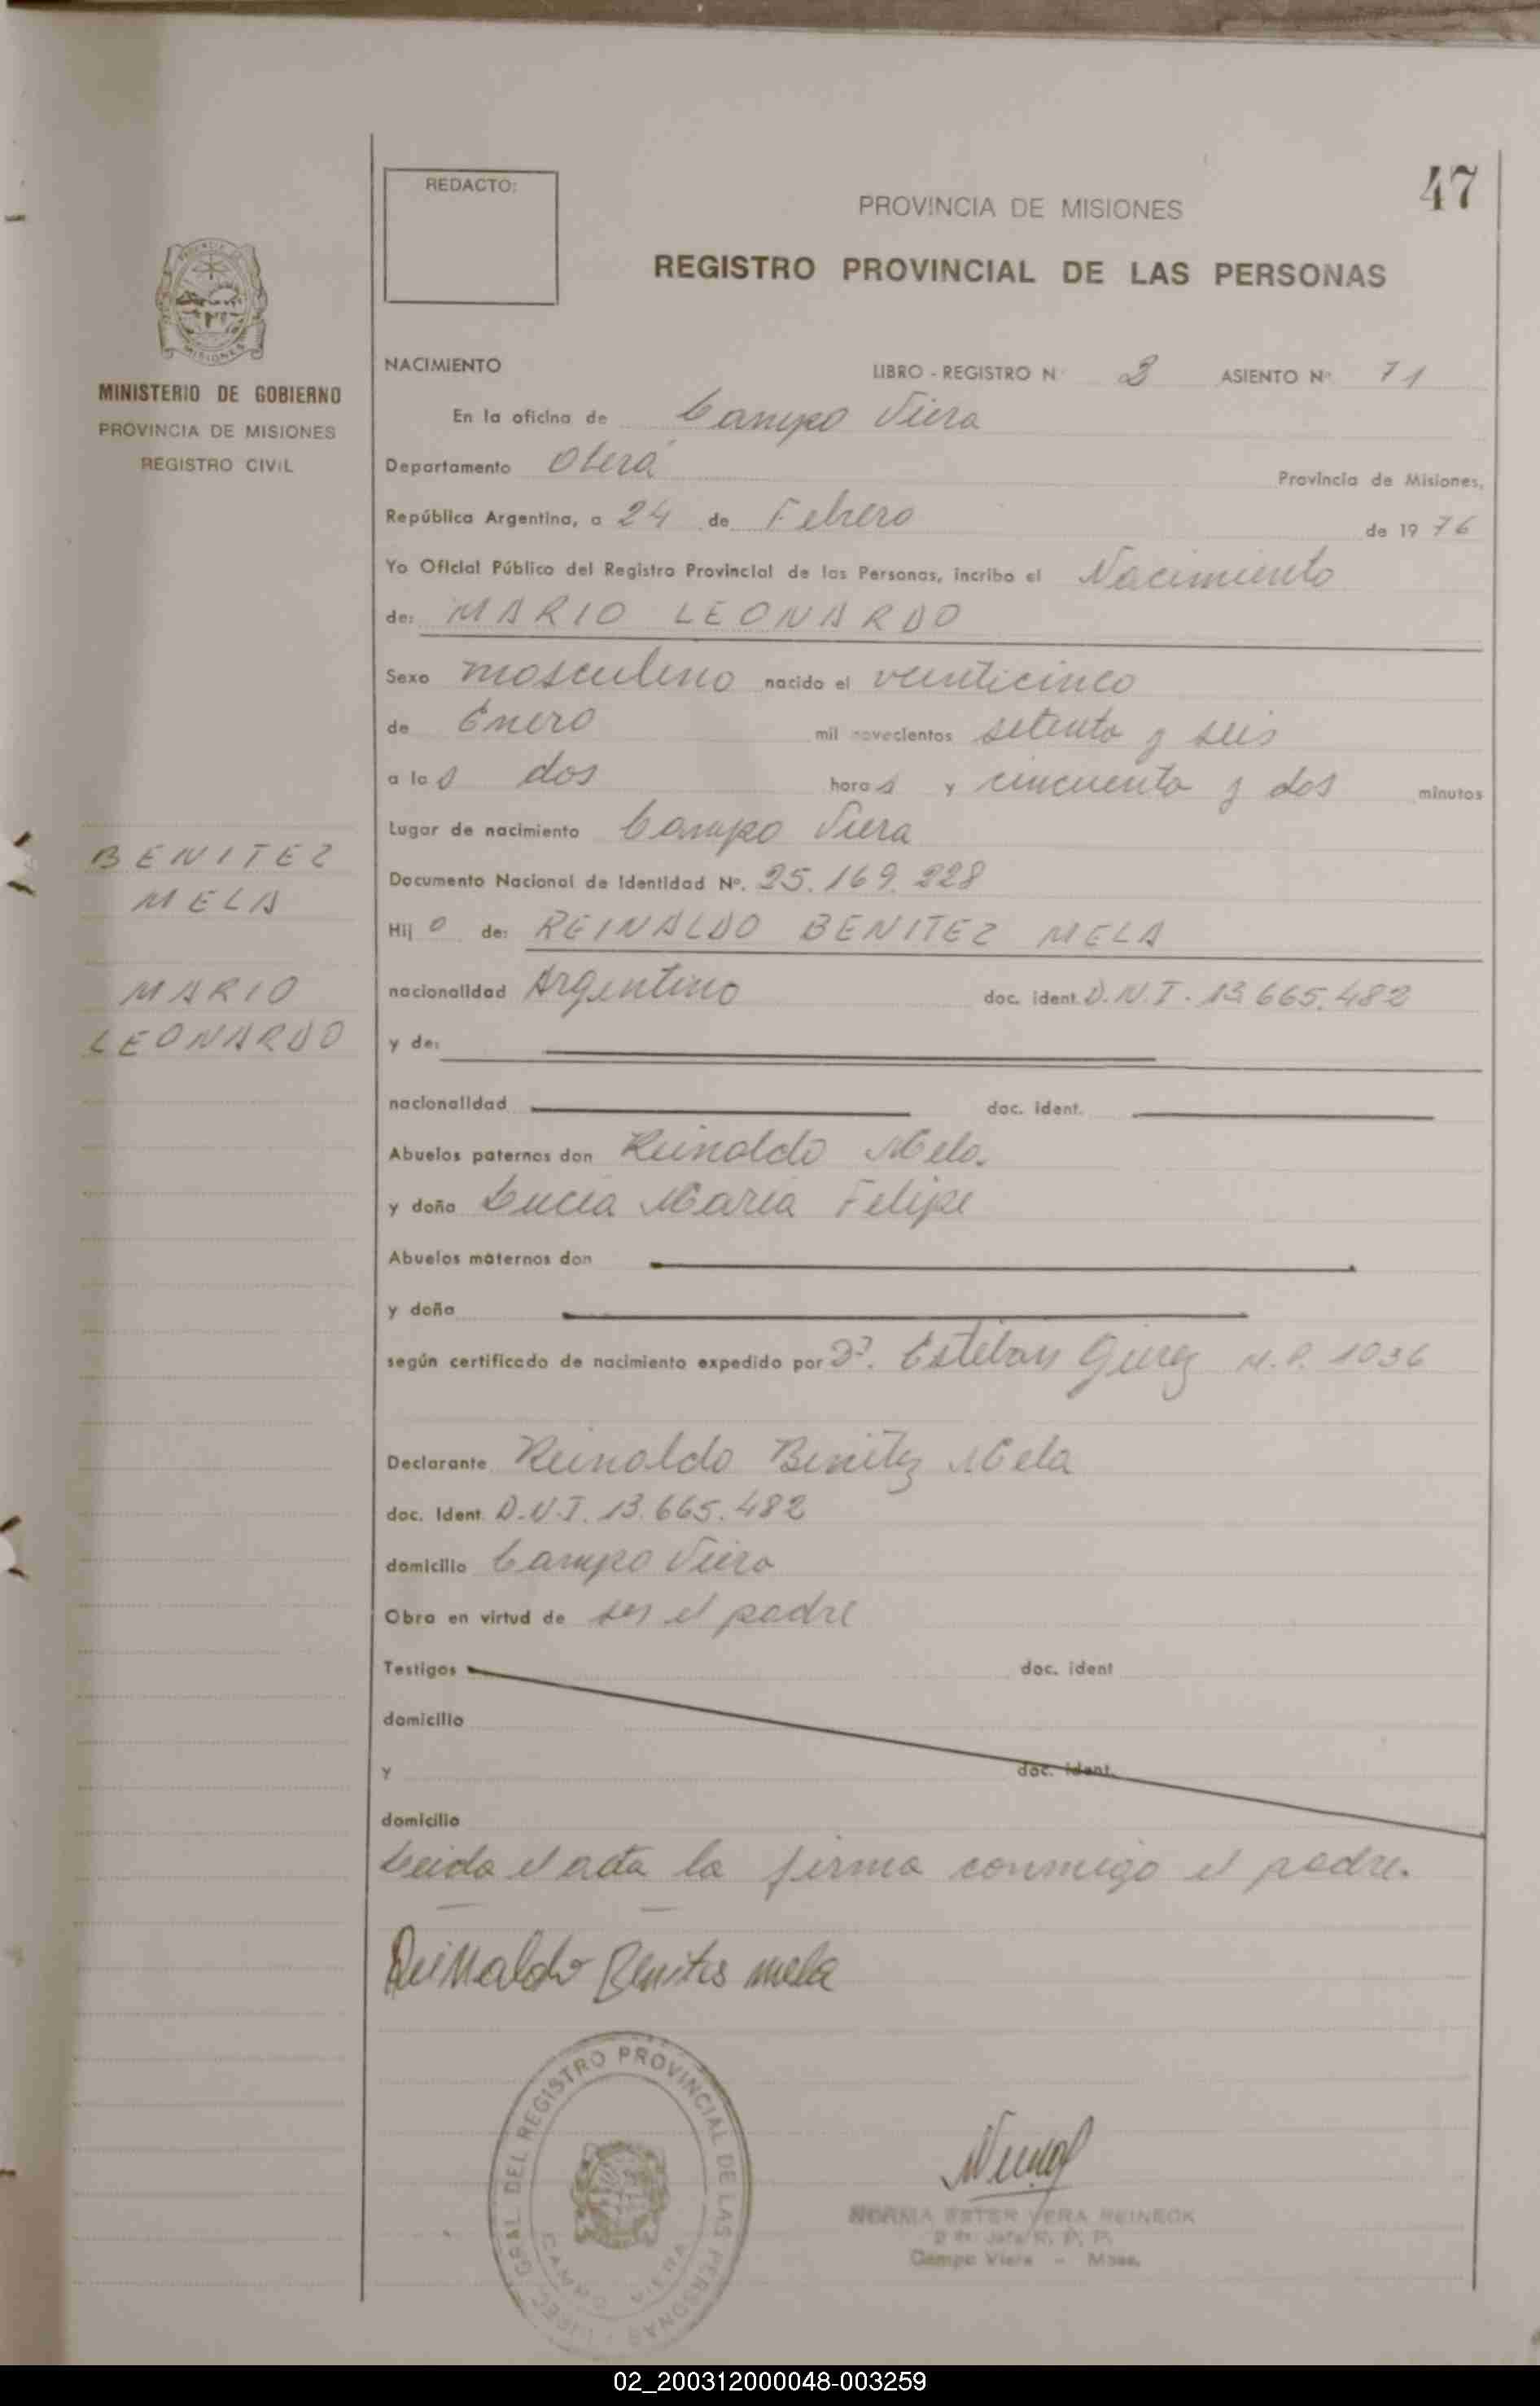 47
REDACTO:
PROVINCIA DE MISIONES
REGISTRO PROVINCIAL DE LAS PERSONAS
MISIONES
MINISTERIO DE GOBIERNO
PROVINCIA DE MISIONES
REGISTRO CIVIL
NACIMIENTO LIBRO - REGISTRO Nº ASIENTO Nº 71
En la oficina de Campo Viera
Departamento Oberá Provincia de Misiones,
República Argentina, a 24 de Febrero de 19 76
Yo Oficial Público del Registro Provincial de las Personas, incribo el Nacimiento
de: MARIO LEONARDO
Sexo masculino nacido el veinticinco
de Enero mil novecientos setenta y seis
a las dos horas y cincuenta y dos minutos
Lugar de nacimiento Campo Viera
BENITEZ
MELA
MARIO
LEONARDO
Documento Nacional de Identidad Nº. 25.169.228
Hijo de: REINALDO BENITEZ MELA
nacionalidad Argentino doc. ident. D.N.I. 13.665.482
y de:
nacionalidad doc. ident.
Abuelos paternos don Reinaldo Mela.
y doña Lucía María Felipe
Abuelos maternos don
y doña
según certificado de nacimiento expedido por Dr. Esteban M.P. 1036
Declarante Reinaldo Benitez Mela
doc. Ident. D.N.I. 13.665.482
domicilio Campo Viera
Obra en virtud de ser el padre
Testigos doc. ident
domicilio
y doc. ident.
domicilio
Leida el acta la firma conmigo el padre.
Reinaldo Benites mela
DIREC. GRAL DEL REGISTRO PROVINCIAL DE LAS PERSONAS
CAMPO VIERA
NORMA ESTER VERA REINECK
Campo Viera - Mnes.
02_200312000048-003259